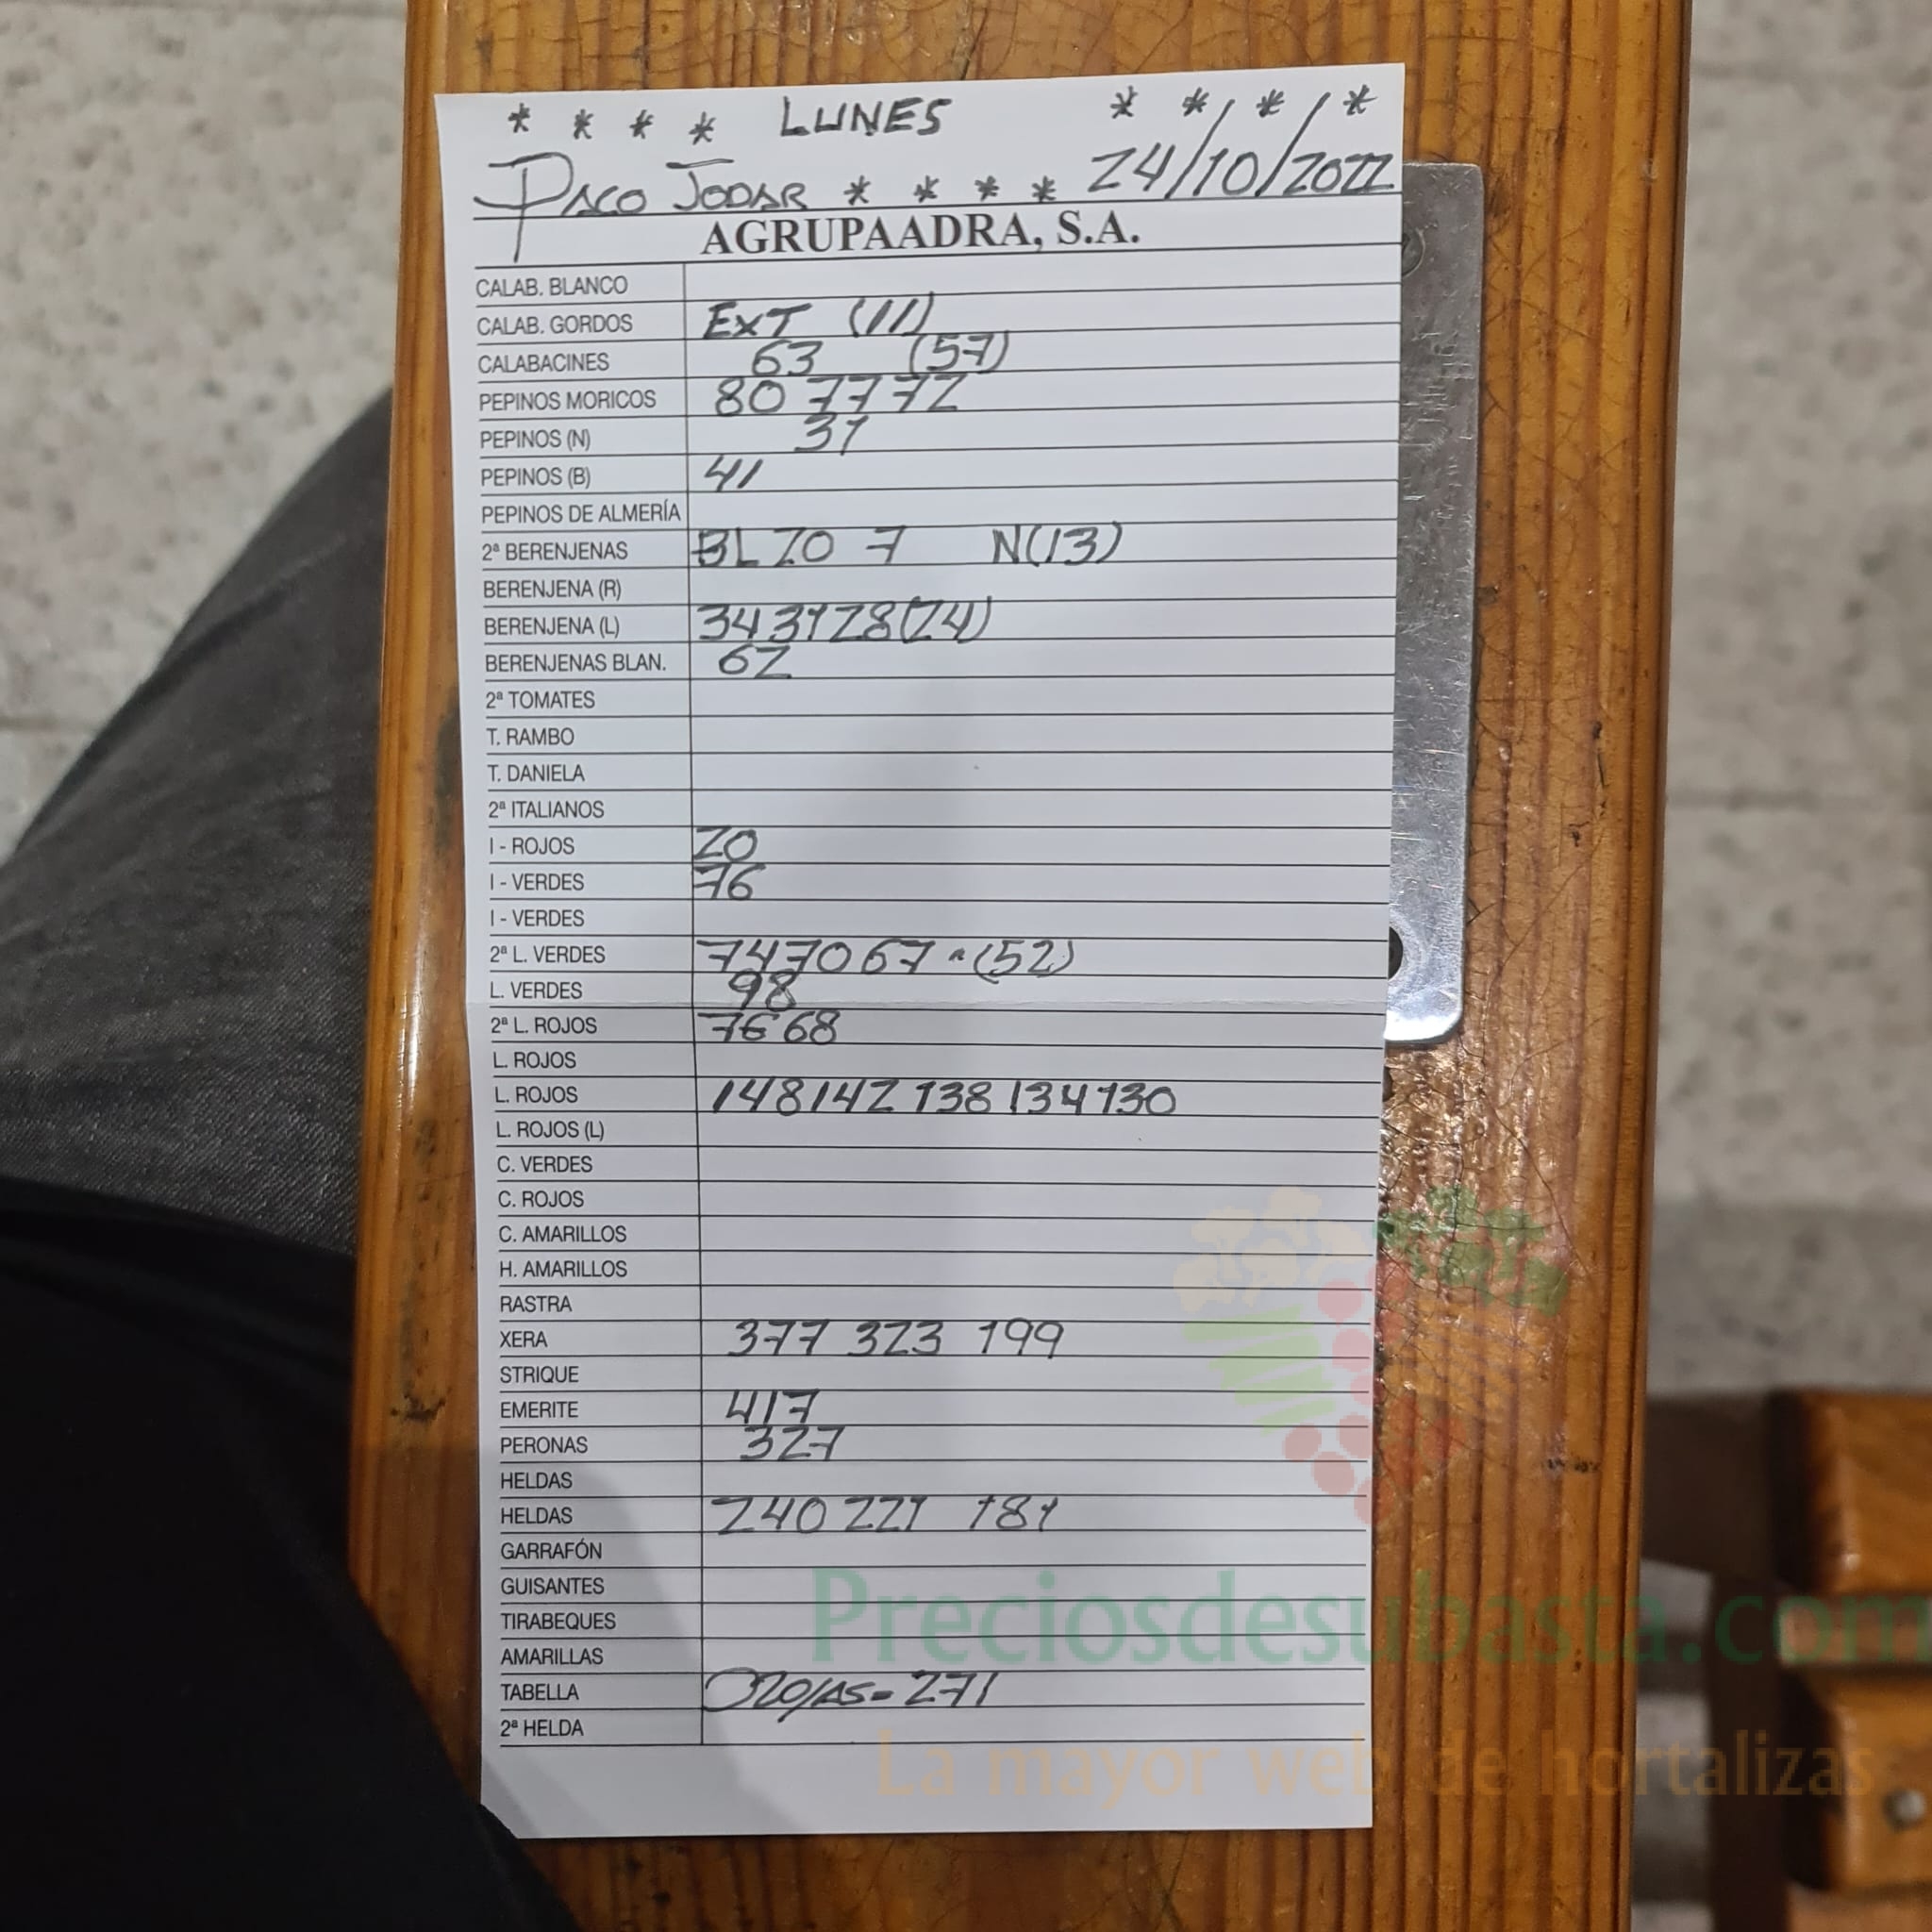 * * * * LUNES * * * *
PACO JODAR * * * * 24/10/2022
AGRUPAADRA, S.A.
CALAB. BLANCO
CALAB. GORDOS EXT (11)
CALABACINES 63 (57)
PEPINOS MORICOS 80 77 72
PEPINOS (N) 31
PEPINOS (B) 41
PEPINOS DE ALMERÍA
2ª BERENJENAS BL 20 7 N(13)
BERENJENA (R)
BERENJENA (L) 34 31 28 (24)
BERENJENAS BLAN. 62
2ª TOMATES
T. RAMBO
T. DANIELA
2ª ITALIANOS
I - ROJOS 20
I - VERDES 76
I - VERDES
2ª L. VERDES 74 70 67 (52)
L. VERDES 98
2ª L. ROJOS 76 68
L. ROJOS
L. ROJOS 148 142 138 134 130
L. ROJOS (L)
C. VERDES
C. ROJOS
C. AMARILLOS
H. AMARILLOS
RASTRA
XERA 377 323 199
STRIQUE
EMERITE 417
PERONAS 327
HELDAS
HELDAS 240 221 181
GARRAFÓN
GUISANTES
TIRABEQUES
AMARILLAS
TABELLA 271
2ª HELDA
Preciosdesubasta.com
La mayor web de hortalizas